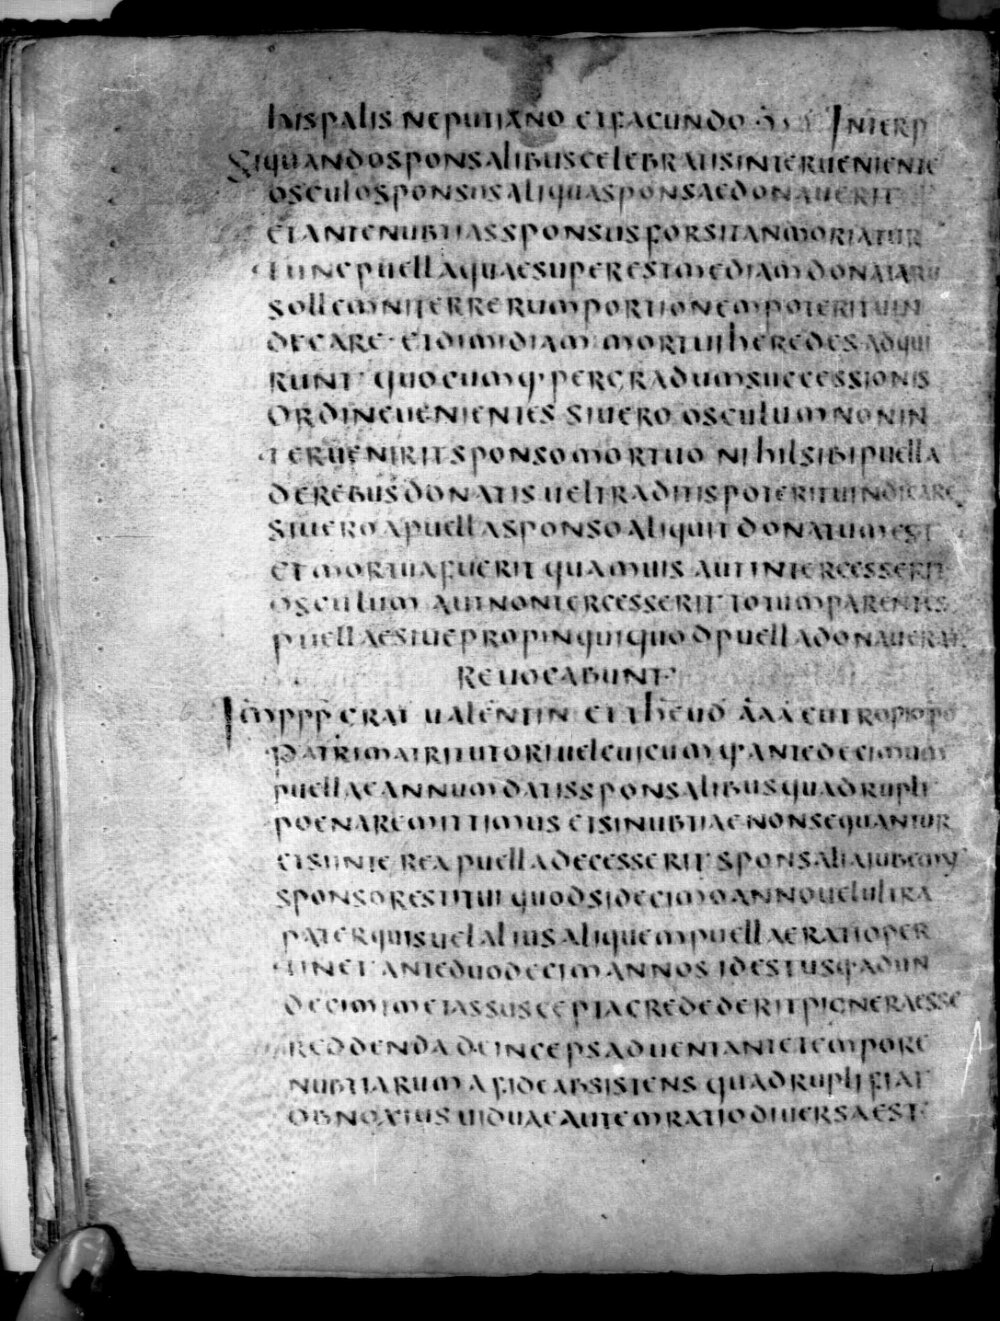 hispalis nepotiano et facundo Interp
Siquandosponsalibuscelebratisinterueniente
osculosponsusaliquasponsaedonauerit
etantenubtiassponsusforsitanmoriatur
tuncpuellaquaesuperestmediamdonataru
sollemniterrerumportionempoterituin
decare· etdimidiam mortuiheredesadqui
runt quocumq· pergradumsuccessionis
ordineuenientes siuero osculumnonin
teruenirit sponsomortuo nihilsibipuella
derebusdonatis ueltraditispoterituindicare
siuero apuellasponsoaliquitdonatumest
et mortuafuerit quamuis autintercesserit
osculum autnontercesserit totumparentes
puellaesiuepropinquiquodpuelladonauerat
reuocabunt
Imppp grat ualentin et theud aaa eutropiopo
Patrimatritutoriuelcuicumq· antedecimum
puellaeannumdatissponsalibusquadrupli
poenaremittimus etsinubtiaenonsequantur
etsiinterea puelladecesserit sponsaliaiubemus
sponsorestitui quodsidecimoannouelultra
paterquisuelaliusaliquempuellaeratioper
tinet anteduodecimannos idestusq· adun
decimimetassusceptacredederitpigneraesse
reddenda deincepsadueniantetempore
nubtiarumafideabsistens quadruplifiat
obnoxius uiduaeautemratiodiuersaest